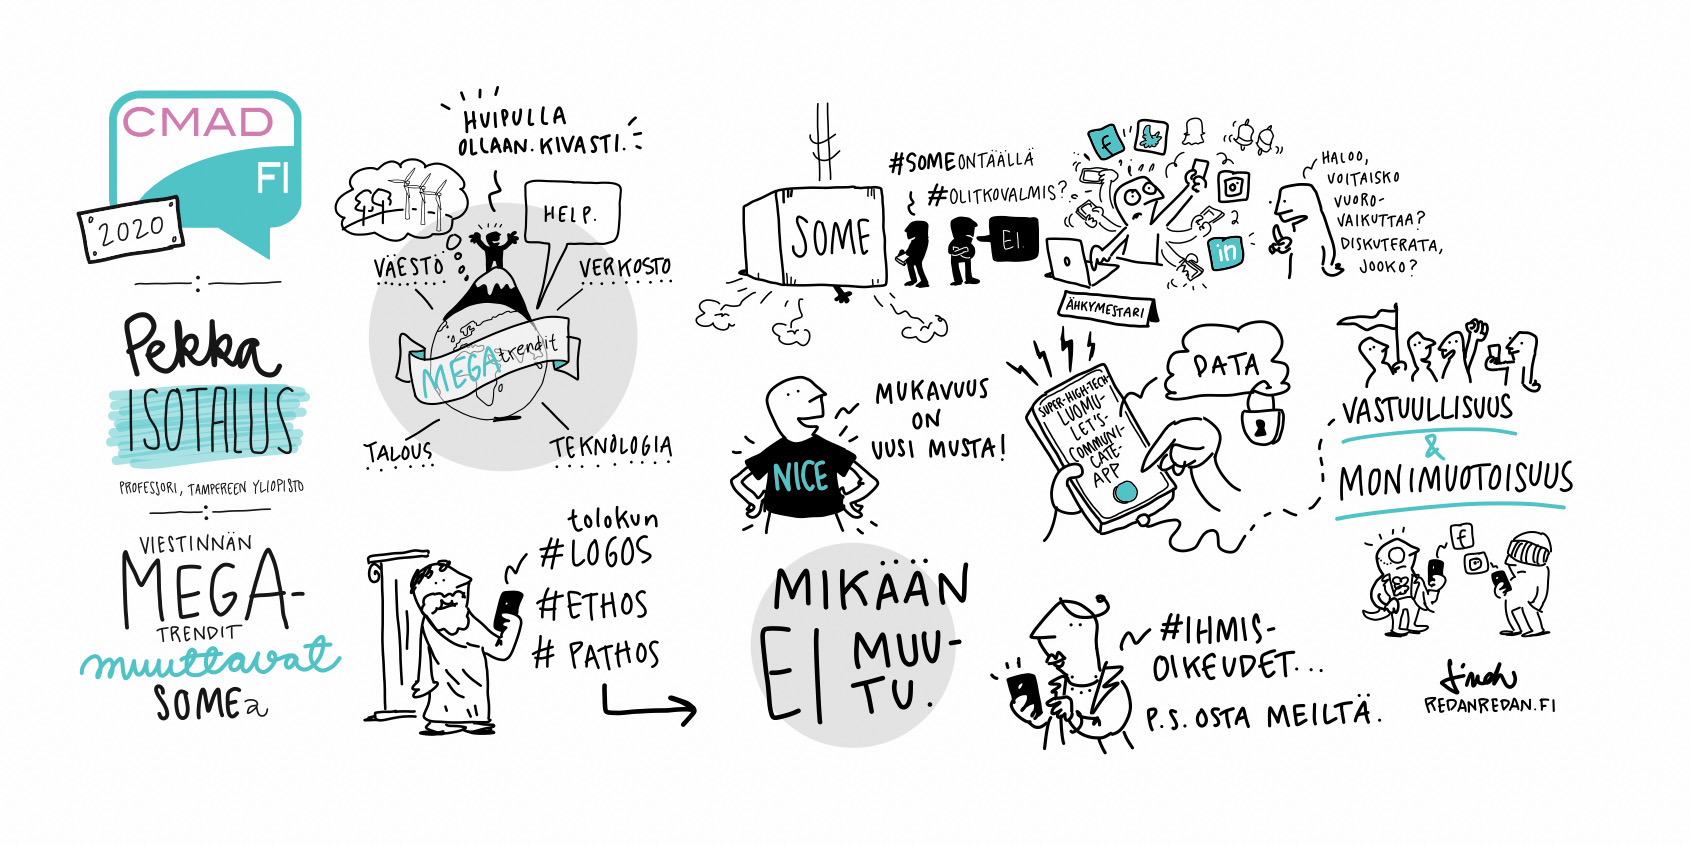 CMAD
FI
2020
Pekka
ISOTALUS
PROFESSORI, TAMPEREEN YLIOPISTO
VIESTINNÄN
MEGA-
TRENDIT
muuttavat
SOMEa
HUIPULLA
OLLAAN. KIVASTI.
HELP.
VÄESTÖ
VERKOSTO
MEGAtrendit
TALOUS
TEKNOLOGIA
tolokun
#LOGOS
#ETHOS
# PATHOS
SOME
#SOMEONTÄÄLLÄ
#OLITKOVALMIS?
EI.
f
in
ÄHKYMESTARI
HALOO,
VOITAISKO
VUORO-
VAIKUTTAA?
DISKUTERATA,
JOOKO?
MUKAVUUS
ON
UUSI MUSTA!
NICE
SUPER-HIGH-TECH-
LUOMU-
LET'S-
COMMUNI-
CATE-
APP
DATA
VASTUULLISUUS
&
MONIMUOTOISUUS
f
MIKÄÄN
EI MUU-
TU.
#IHMIS-
OIKEUDET...
P.S. OSTA MEILTÄ.
REDANREDAN.FI